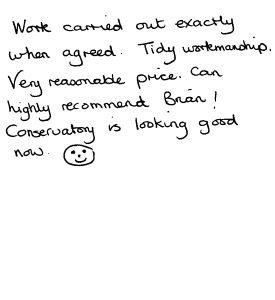 Work carried out exactly
when agreed. Tidy workmanship.
Very reasonable price. Can
highly recommend Brian!
Conservatory is looking good
now.